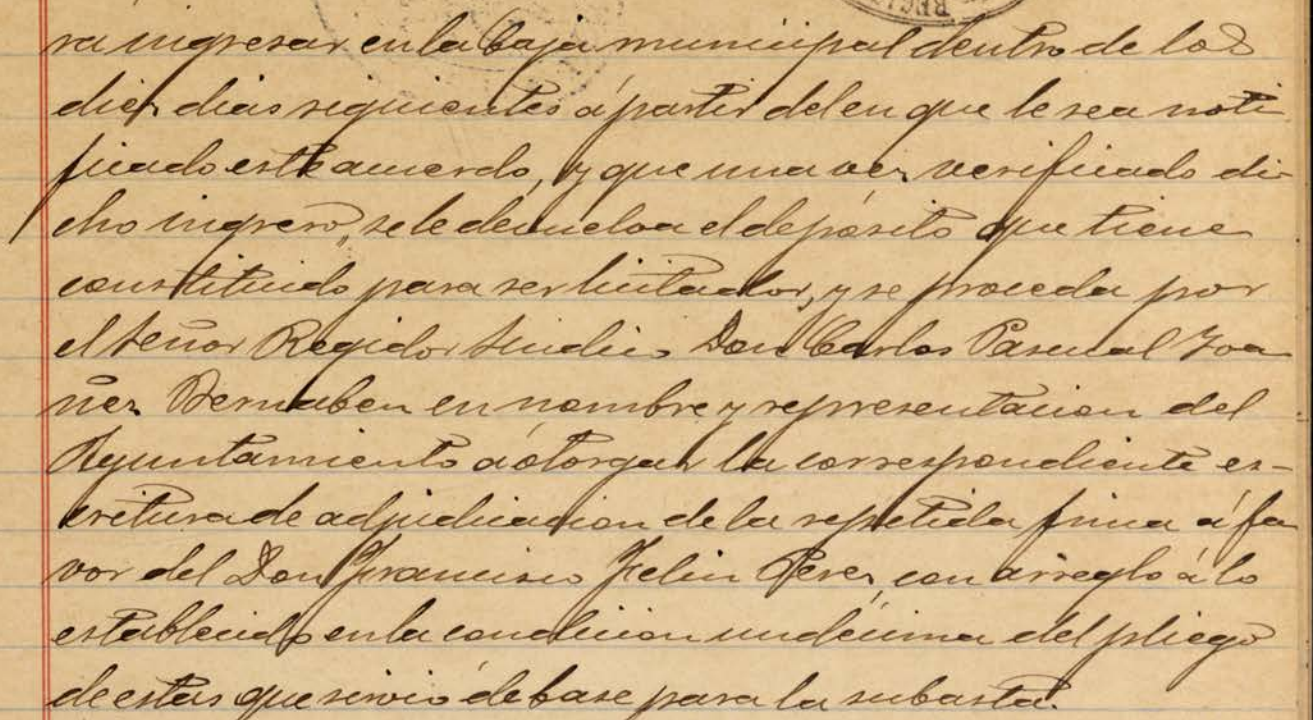 ra ingresar en la Caja municipal dentro de los
diez dias siguientes á partir del en que le sea noti
ficado este acuerdo, y que una vez verificado di-
cho ingreso, se le devuelva el depósito que tiene
constituido para ser licitador, y se proceda por
el Señor Regidor Sindico Don Carlos Pascual Yva
ñez Bernabeu en nombre y representacion del
Ayuntamiento á otorgar la correspondiente es-
critura de adjudicacion de la repetida finca á fa
vor del Don Francisco Feliu Perez, con arreglo á lo
establecido en la condicion undécima del pliego
de estas que sirvió de base para la subasta.